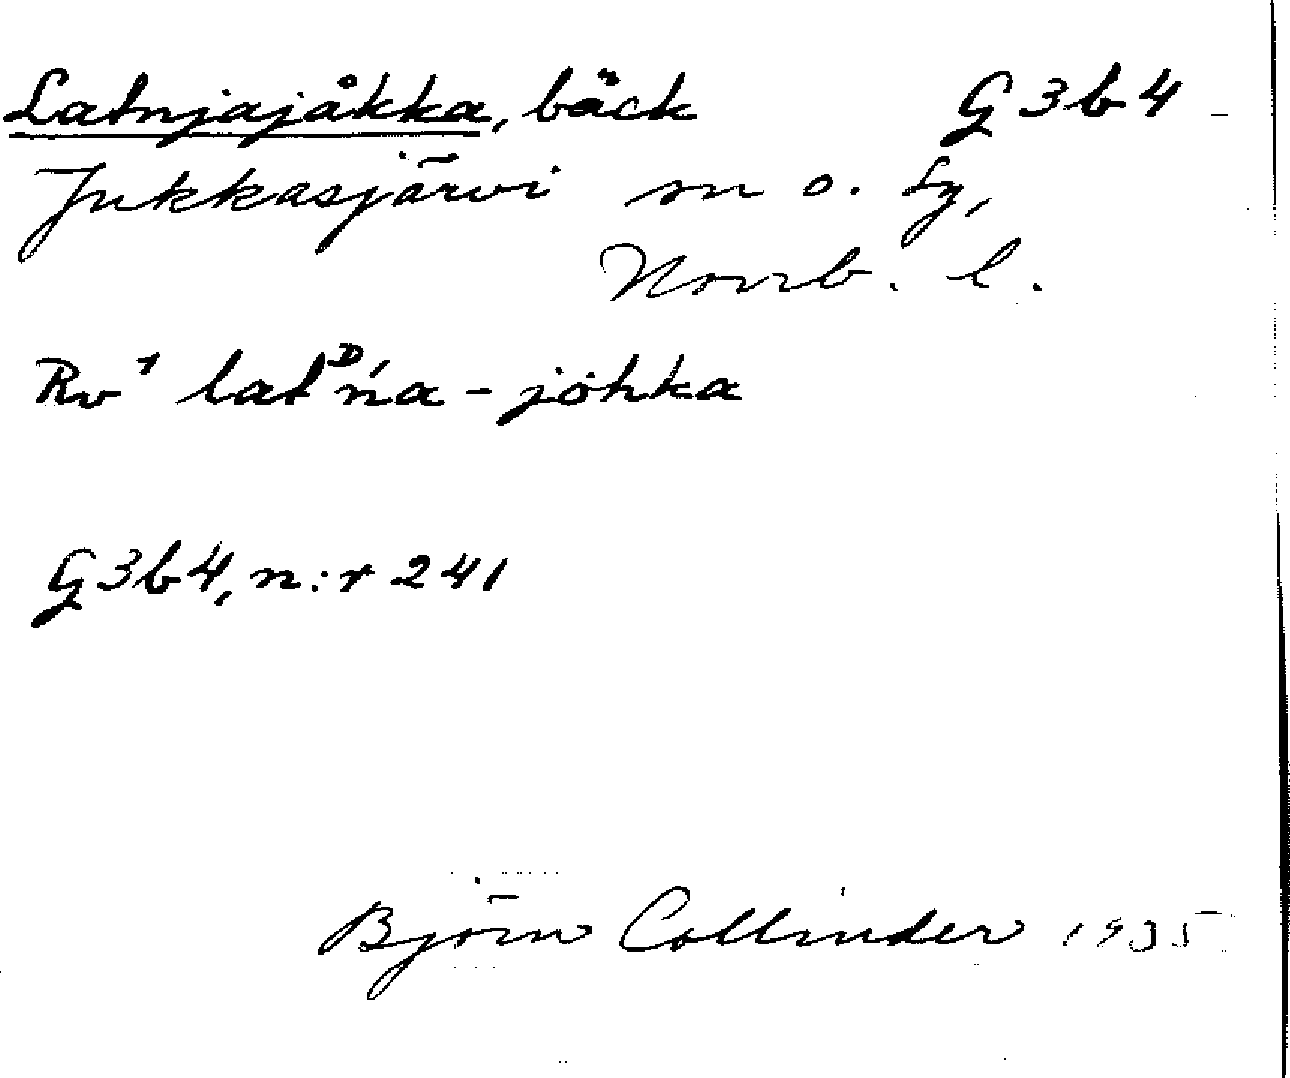 Latnjajåkka, bäck G3b4-
Jukkasjärvi sn o. lg,
Norrb. l.
Rv¹ latᴰńa-johka
G3b4, n:r 241
Björn Collinder 1935